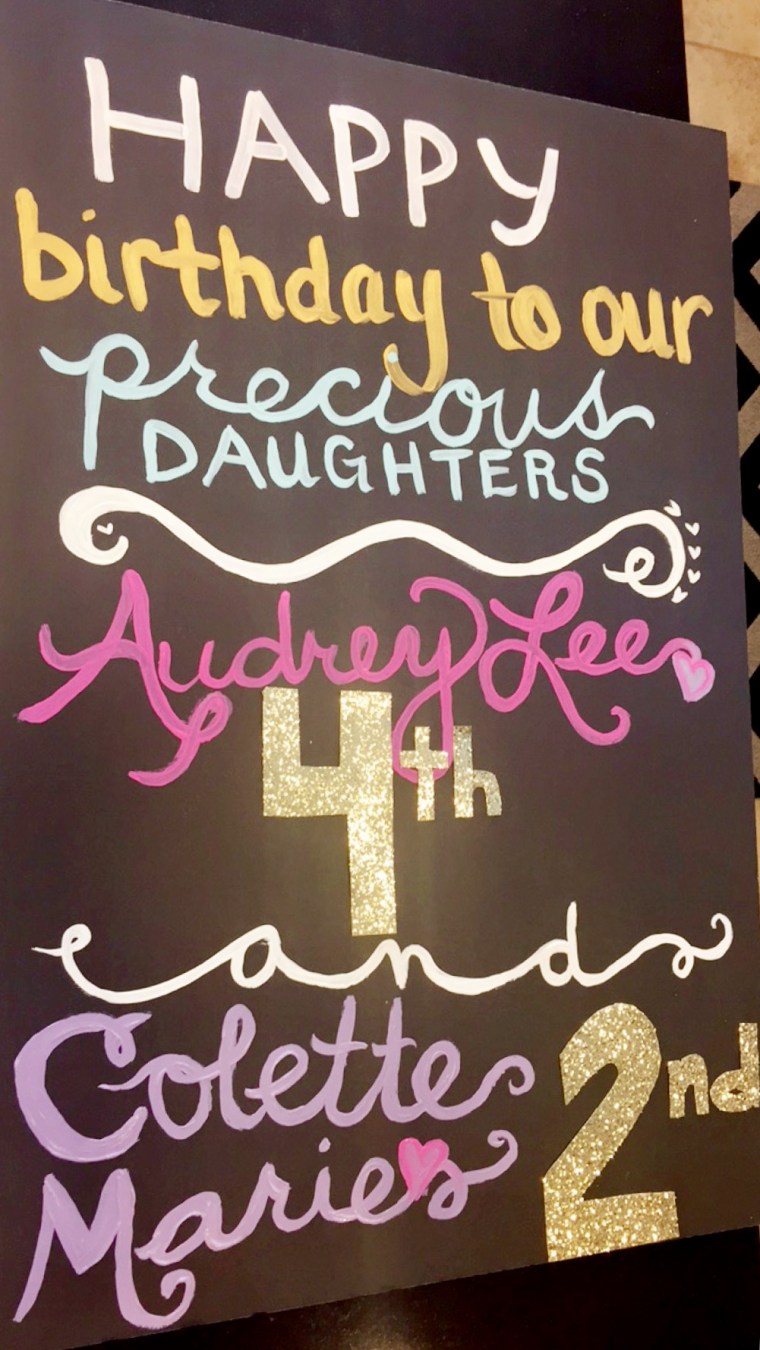 HAPPY
birthday to our
precious
DAUGHTERS
Audrey Lee
4th
and
Colette
Marie
2nd